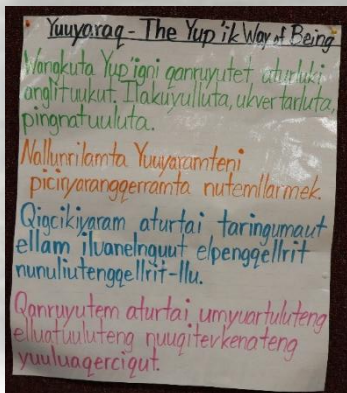 Yuuyaraq - The Yup'ik Way of Being
Wangkuta Yup'igni qanruyutet aturluki
anglituukut. Ilakuyulluta, ukvertarluta,
pingnatuuluta.
Nallunrilamta Yuuyaramteni
picinyaranqgerramta nutemllarmek.
Qigcikiyaram aturtai taringumaut
ellam iluanelnguut elpengqellrit
nunuliutengqellrit-llu.
Qanruyutem aturtai, umyuartuluteng
elluatuuluteng nuuqitevkenateng
yuuluaqerciqut.